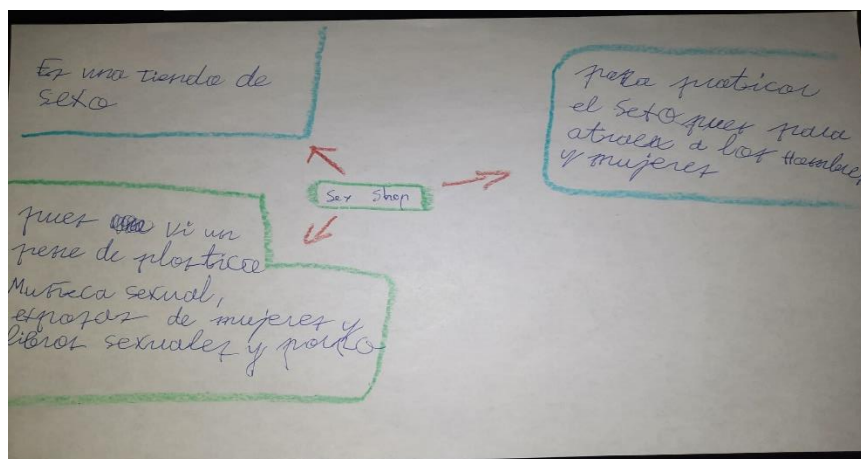 Es una tienda de
sexo
para praticar
el sexo pues para
atraer a los Hombres
y mujeres
Sex Shop
pues vi un
pene de plastico
Muñeca sexual,
esposas de mujeres y
libros sexuales y porno